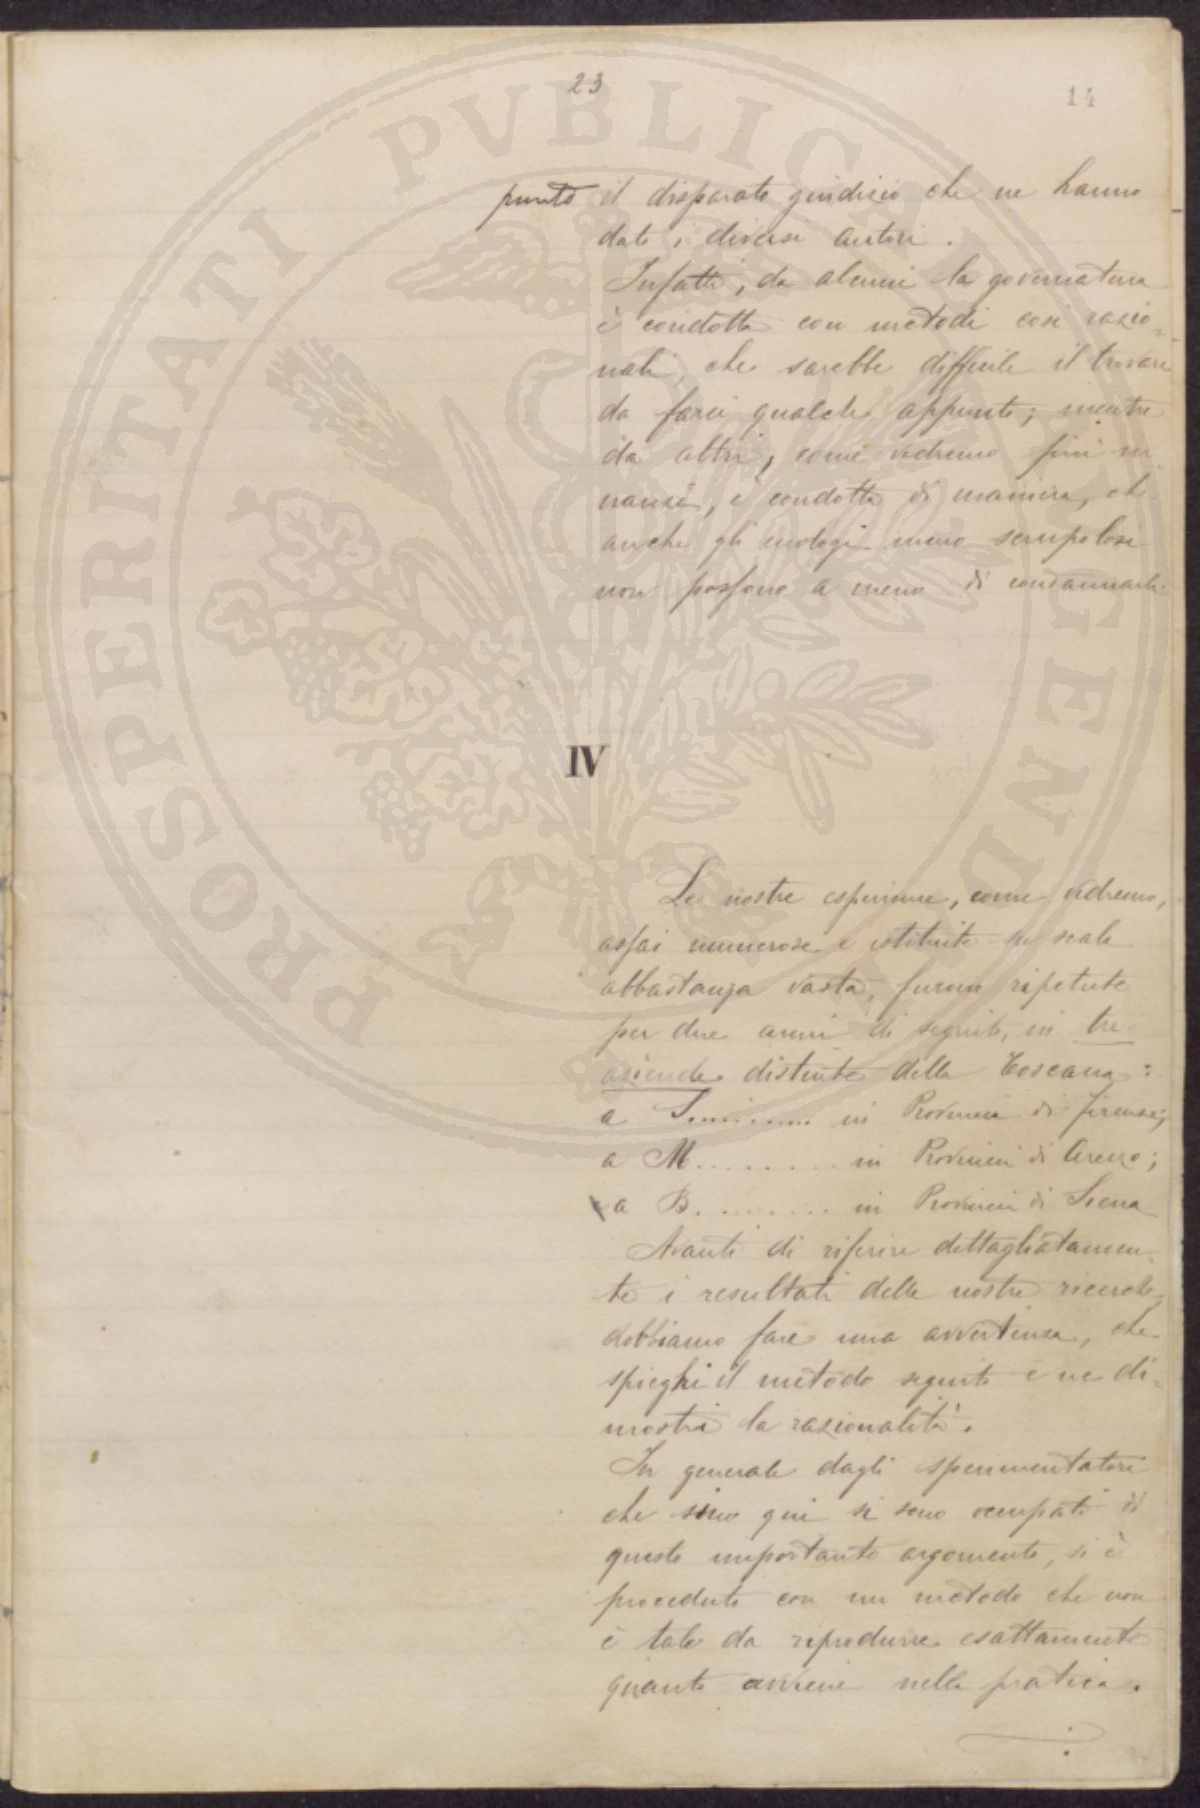 23
14
punto il disparato giudizio che ne hanno
dato i diversi autori.
Infatti, da alcuni la governatura
è condotta con metodi così razio=
nali, che sarebbe difficile il trovare
da farci qualche appunto; mentre
da altri, come vedremo fini in
nanzi, è condotta di maniera, che
anche gli enologi meno scrupolosi
non possono a meno di condannarli.
IV
Le nostre esperienze, come vedremo,
assai numerose e istituite su scala
abbastanza vasta, furono ripetute
per due anni di seguito, in tre
aziende distinte della Toscana:
a S.......... in Provincia di Firenze;
a M......... in Provincia di Arezzo;
a B......... in Provincia di Siena
Avanti di riferire dettagliatamen=
te i resultati delle nostre ricerche,
dobbiamo fare una avvertenza, che
spieghi il metodo seguito e ne di=
mostri la razionalità.
In generale dagli sperimentatori
che sino qui si sono occupati di
questo importante argomento, si è
proceduto con un metodo che non
è tale da riprodurre esattamente
quanto avviene nella pratica.
PROSPERITATI PVBLICAE AVGENDAE